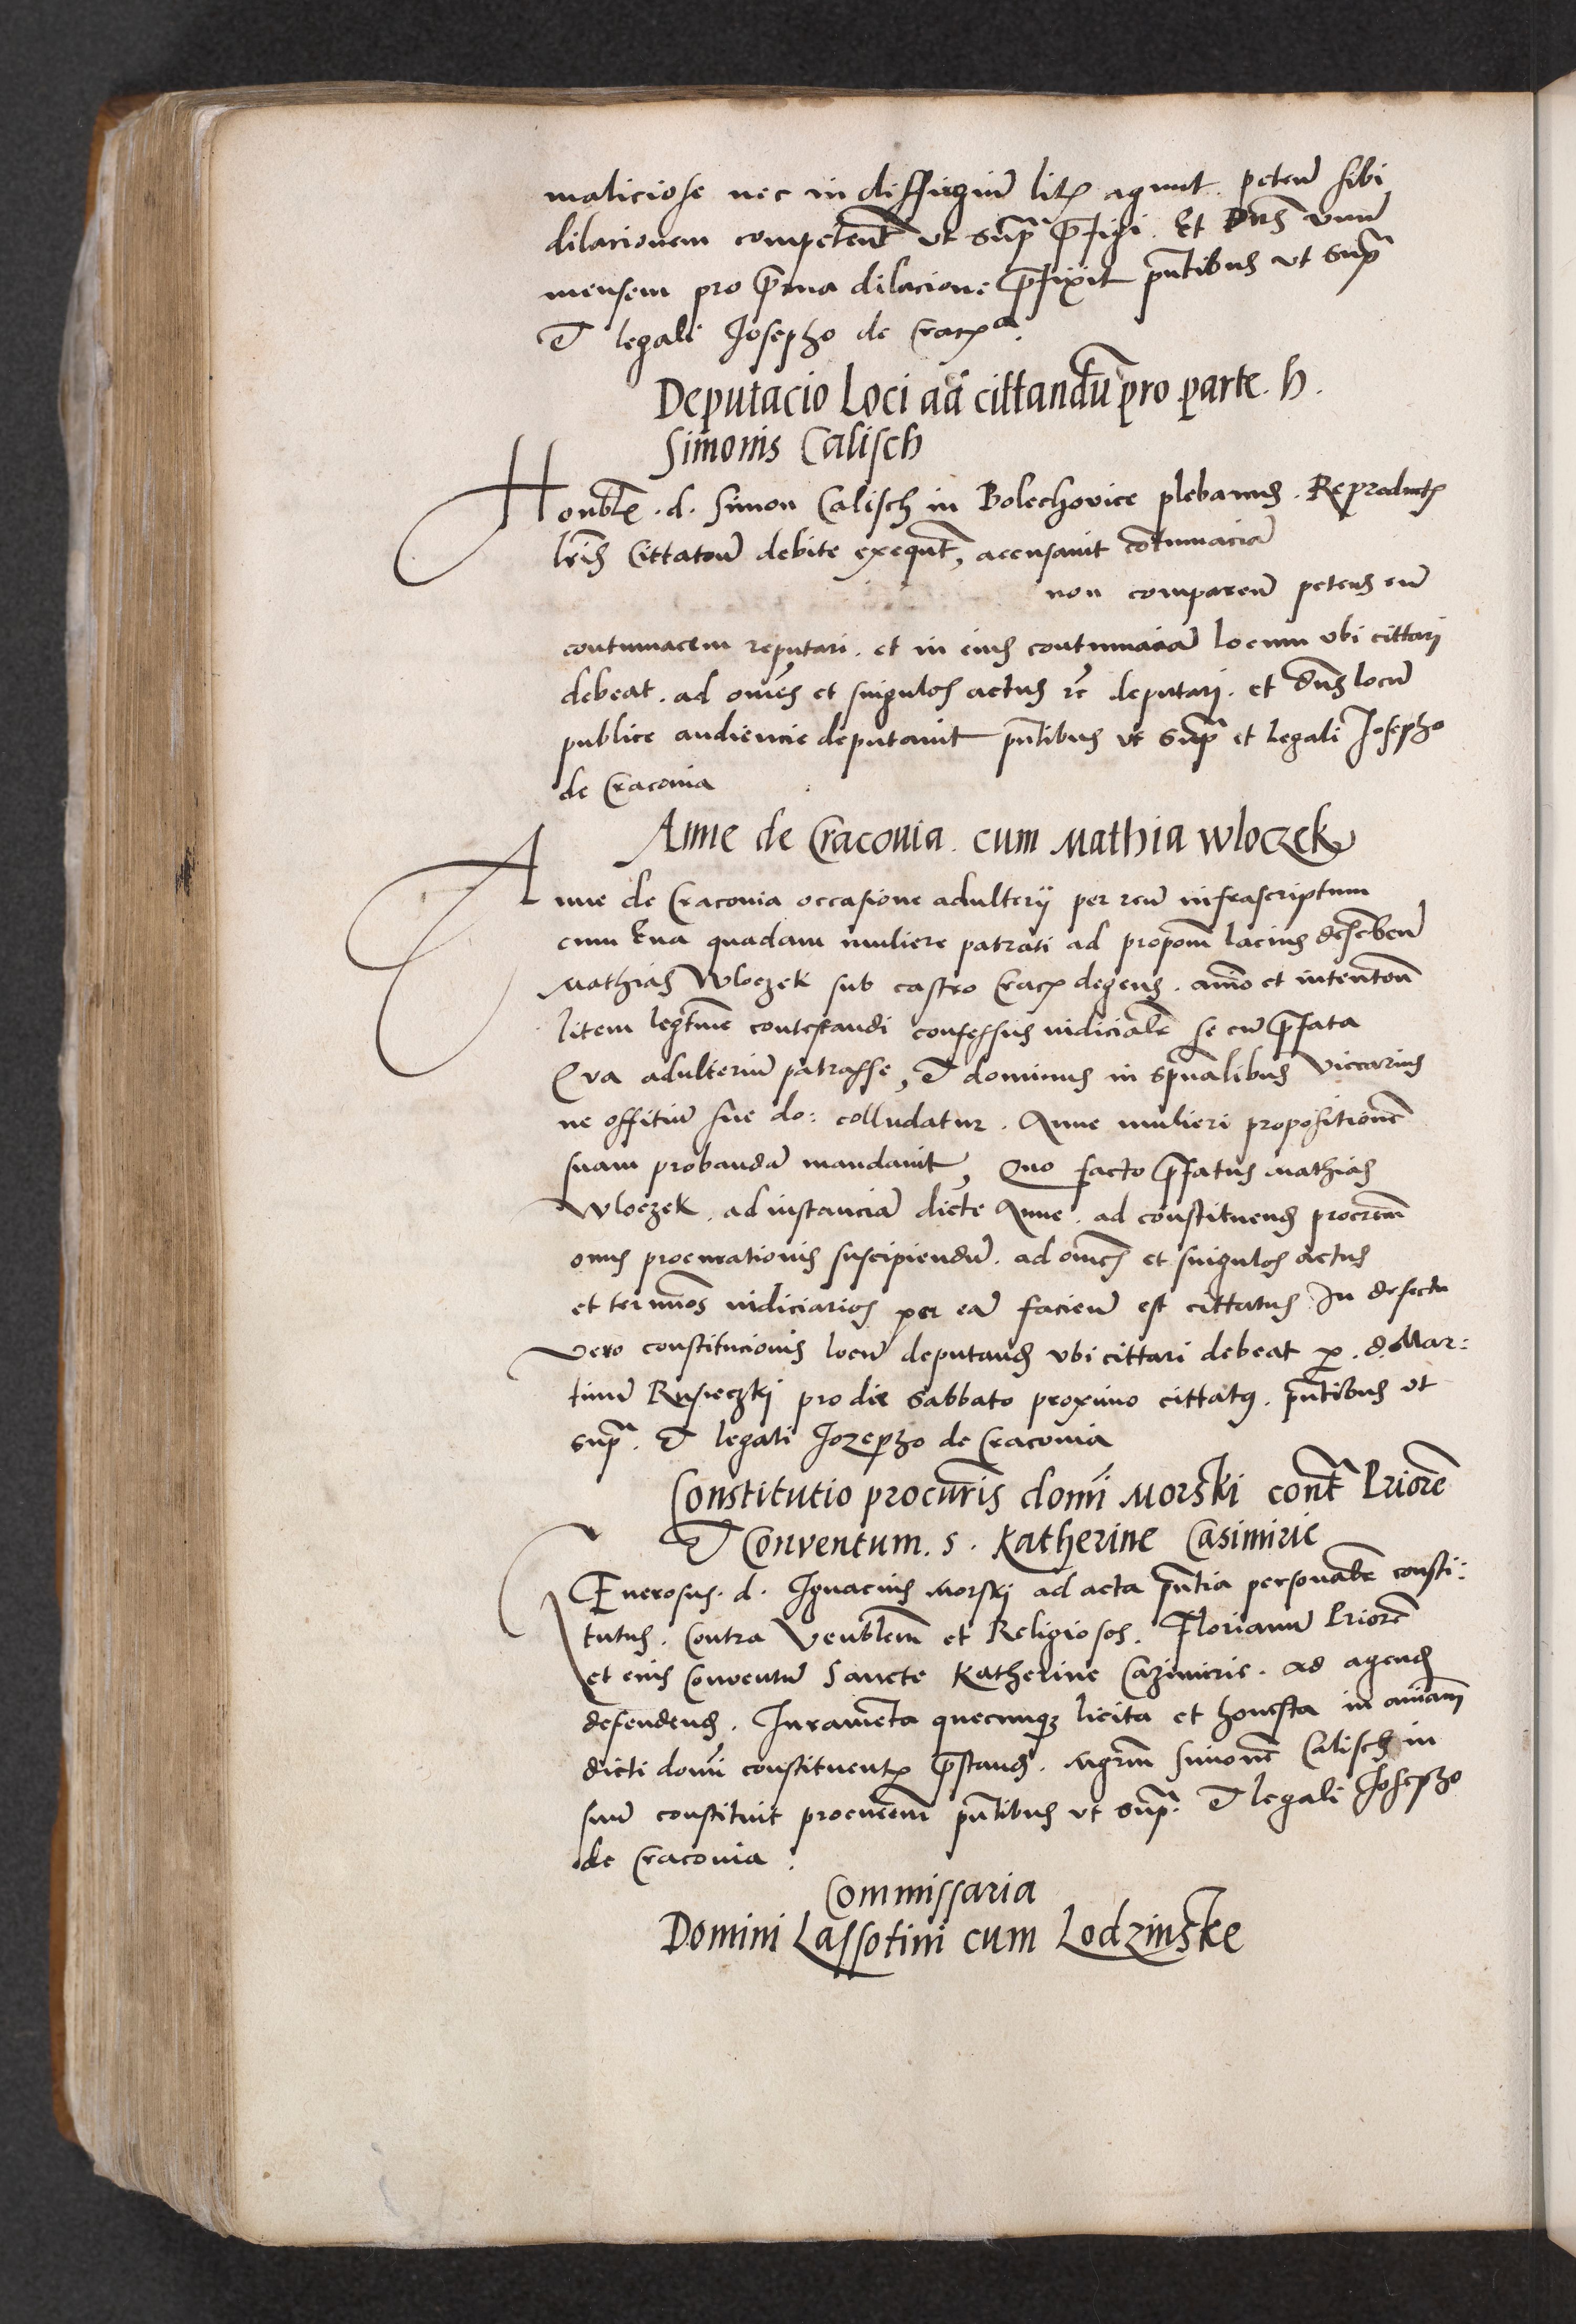 maliciose nec in diffugiu͞ litꝭ agunt. peteñ sibi
dilacionem competent͞ ut supᵃ p͞figi. Et Dn͞s vnu͞
mensem pro p͞ma dilacione p͞fixit pn͞tibus ut supᵃ
et legali Josepho de Cracꝭa.
Deputacio Loci ad cittandu͞ pro parte. h.
Simonis Calisch
Honbl͞e. d. Simon Calisch in Bolechovice plebanus. Reproductꝭ
lr͞is Cittatoru͞ debite exequt͞, accusauit co͞tumacia͞
non compareñ petens eu͞
contumacem reputari. et in eius contumacia͞ locum vbi cittari
debeat. ad om͞es et singulos actus rc͞ deputari. et dn͞s locu͞
publice audiencie deputauit pn͞tibus ut supᵃ et legali Josepho
de Cracouia
Anne de Cracouia. cum Mathia Wloczek
Anne de Cracouia occasione adulterii per reu͞ infrascriptum
cum Eua quadam muliere patrati ad propom͞ lacius describeñ
Mathias Wloczek sub castro Cracꝭ degens. ani͞o et intento͞e
litem legt͞ime contestandi confessus iudicialr͞ se cu͞ p͞fata
Eva adulteriu͞ patrasse, et dominus in sp͞ualibus Viccarius
ne offitiu͞ sue do: colludatur. Anne mulieri propositione͞
suam probanda͞ mandauit, Quo facto p͞fatus Mathias
Wloczek. ad instancia͞ dicte Anne. ad constituend procr͞em
onus procurationis suscipiendu͞. ad om͞es et singulos actus
et termi͞os iudiciarios per ea͞ facieñ est cittatus In defectu
vero constitucionis locu͞ deputand vbi cittari debeat ꝑ. d. Mar:
tinu͞ Rusieczki pro die Sabbato proximo cittatꝰ. pn͞tibus ut
supᵃ. et legali Jozepho de Cracouia
Constitutio procur͞is domi͞ Morski contᵃ Priore͞
et Conventum. S. Katherine Casimirie
GEnerosus. d. Ignacius Morski ad acta pn͞tia personalr͞ consti:
tutus. Contra Venbl͞em et Religiosos. Florianu͞ Priore͞
et eius Conventu͞ Sancte Katherine Cazimirie. ad agend
defendend. Jurame͞ta quecunqꝫ licita et honesta in ani͞am
dicti domi͞ constituentꝭ p͞stand. Mgr͞m Simone͞ Calisch in
suu͞ constituit procur͞em pn͞tibus ut supᵃ. et legali Josepho
de Cracouia.
Commissaria
Domini Lassotini cum Lodzinske